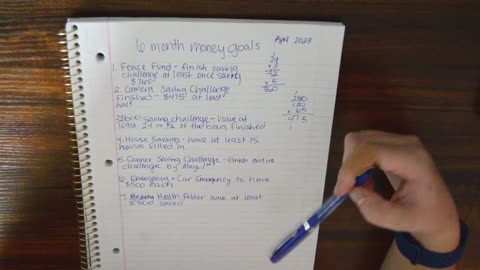 6 month money goals
April 2023
1. Fence Fund - finish saving
challenge at least once saving
$360
2. Camera Saving Challenge
Finished - $475 at least
half
saving challenge - have at
least 24 of the bars finished
4. House Savings - have at least 15
houses filled in
5. Career Saving Challenge - Finish entire
challenge by May 1st
6. Emergency + Car Emergency to have
$500 each
7. Health Folder have at least
saved
360
280
475